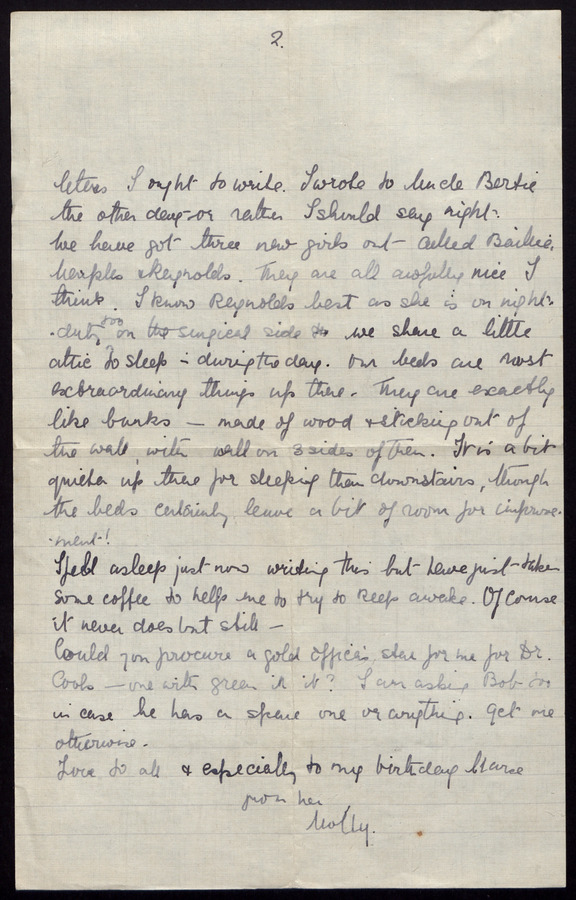 2.
letters I ought to write. I wrote to Uncle Bertie
the other day - or rather I should say night.
We have got three new girls out - called Baillie,
& Reynolds. They are all awfully nice I
think. I know Reynolds best as she is on night-
-duty too on the surgical side & we share a little
attic to sleep in during the day. Our beds are most
extraordinary things up there. They are exactly
like bunks — made of wood & sticking out of
the wall, with wall on 3 sides of them. It is a bit
quieter up there for sleeping than downstairs, though
the beds certainly leave a bit of room for improve-
-ment!
I fell asleep just now writing this but have just taken
some coffee to help me to try to keep awake. Of course
it never does but still —
Could you procure a gold officer's star for me for Dr.
— one with green in it? I am asking Bob too
in case he has a spare one or anything. Get one
otherwise.
Love to all & especially to my birthday
from her
Molly.